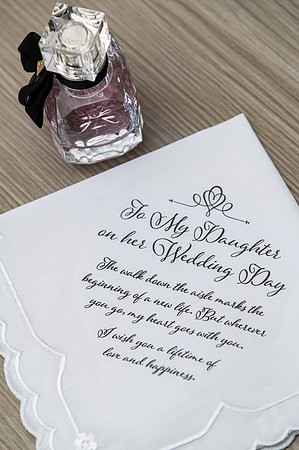 To My Daughter
on her Wedding Day
The walk down the aisle marks the
beginning of a new life. But wherever
you, go, my heart goes with you.
I wish you a lifetime of
love and happiness.